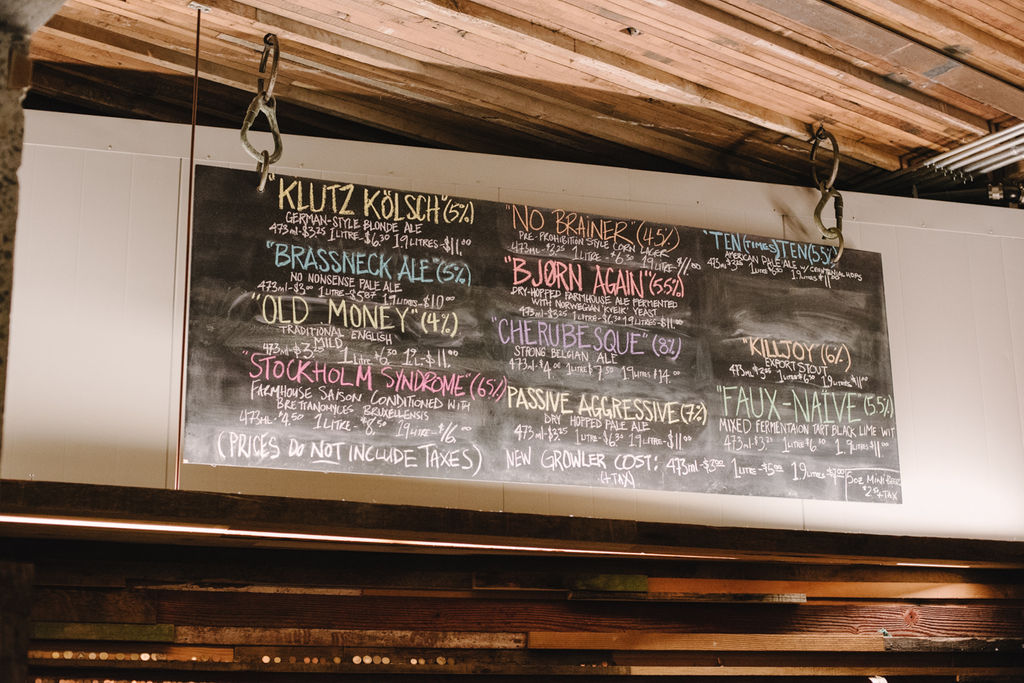 "KLUTZ KÖLSCH" (5%)
GERMAN-STYLE BLONDE ALE
473ml-$3.25 1 LITRE-$6.30 1.9 LITRES-$11.00
"BRASSNECK ALE" (5%)
NO NONSENSE PALE ALE
473ml-$3.00 1 LITRE-$5.87 1.9 LITRES-$10.00
"OLD MONEY" (4%)
TRADITIONAL ENGLISH
MILD
473ml-$3.25 1 LITRE-$6.30 1.9 L-$11.00
"STOCKHOLM SYNDROME" (6.5%)
FARMHOUSE SAISON CONDITIONED WITH
BRETTANOMYCES BRUXELLENSIS
473ml-$4.50 1 LITRE-$8.50 1.9 LITRE-$16.00
(PRICES DO NOT INCLUDE TAXES)
"NO BRAINER" (4.5%)
PRE-PROHIBITION STYLE CORN LAGER
473ml-$3.25 1 LITRE-$6.30 1.9 LITRE-$11.00
"BJØRN AGAIN" (5.5%)
DRY-HOPPED FARMHOUSE ALE FERMENTED
WITH NORWEGIAN KVEIK YEAST
473ml-$3.25 1 LITRE-$6.30 1.9 LITRES-$11.00
"CHERUBESQUE" (8%)
STRONG BELGIAN ALE
473ml-$4.00 1 LITRE $7.50 1.9 LITRES $14.00
PASSIVE AGGRESSIVE (7%)
DRY HOPPED PALE ALE
473ml-$3.25 1 LITRE-$6.30 1.9 LITRE-$11.00
NEW GROWLER COST: 473ml-$3.00 1 LITRE-$5.00 1.9 LITRES
(+TAX)
"TEN (TIMES) TEN (5.5%)
AMERICAN PALE ALE W/ CONTINENTAL HOPS
473ml-$3.25 1 LITRE $6.30 1.9 LITRES $11.00
"KILLJOY" (6%)
EXPORT STOUT
473ml-$3.25 1 LITRE $6.30 1.9 LITRES $11.00
"FAUX-NAÏVE" (5.5%)
MIXED FERMENTAION TART BLACK LIME WIT
473ml-$3.25 1 LITRE $6.30 1.9 LITRES $11.00
5oz MINI BEER
+TAX